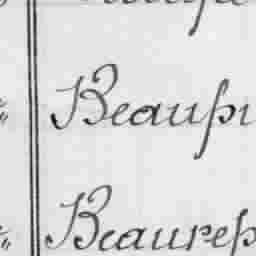 Beaupr
Beaurep